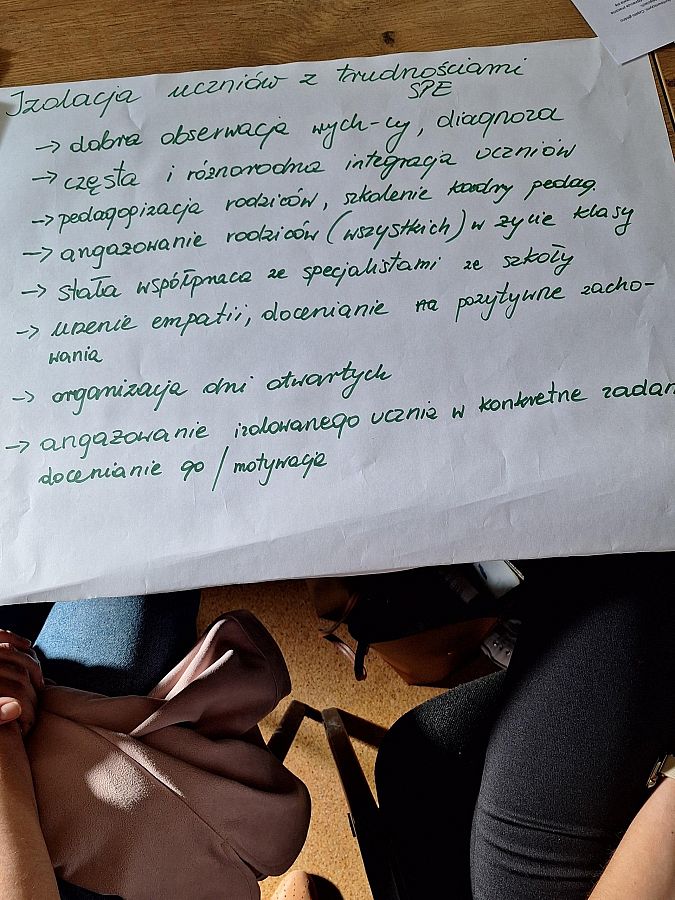 Izolacja uczniów z trudnościami
SPE
→ dobra obserwacja wych-cy, diagnoza
→ częsta i różnorodna integracja uczniów
→ pedagogizacja rodziców, szkolenie kadry pedag.
→ angażowanie rodziców (wszystkich) w życie klasy
→ stała współpraca ze specjalistami ze szkoły
→ uczenie empatii, docenianie na pozytywne zacho-
wania
→ organizacja dni otwartych
→ angażowanie izolowanego ucznia w konkretne zadan
docenianie go / motywacja